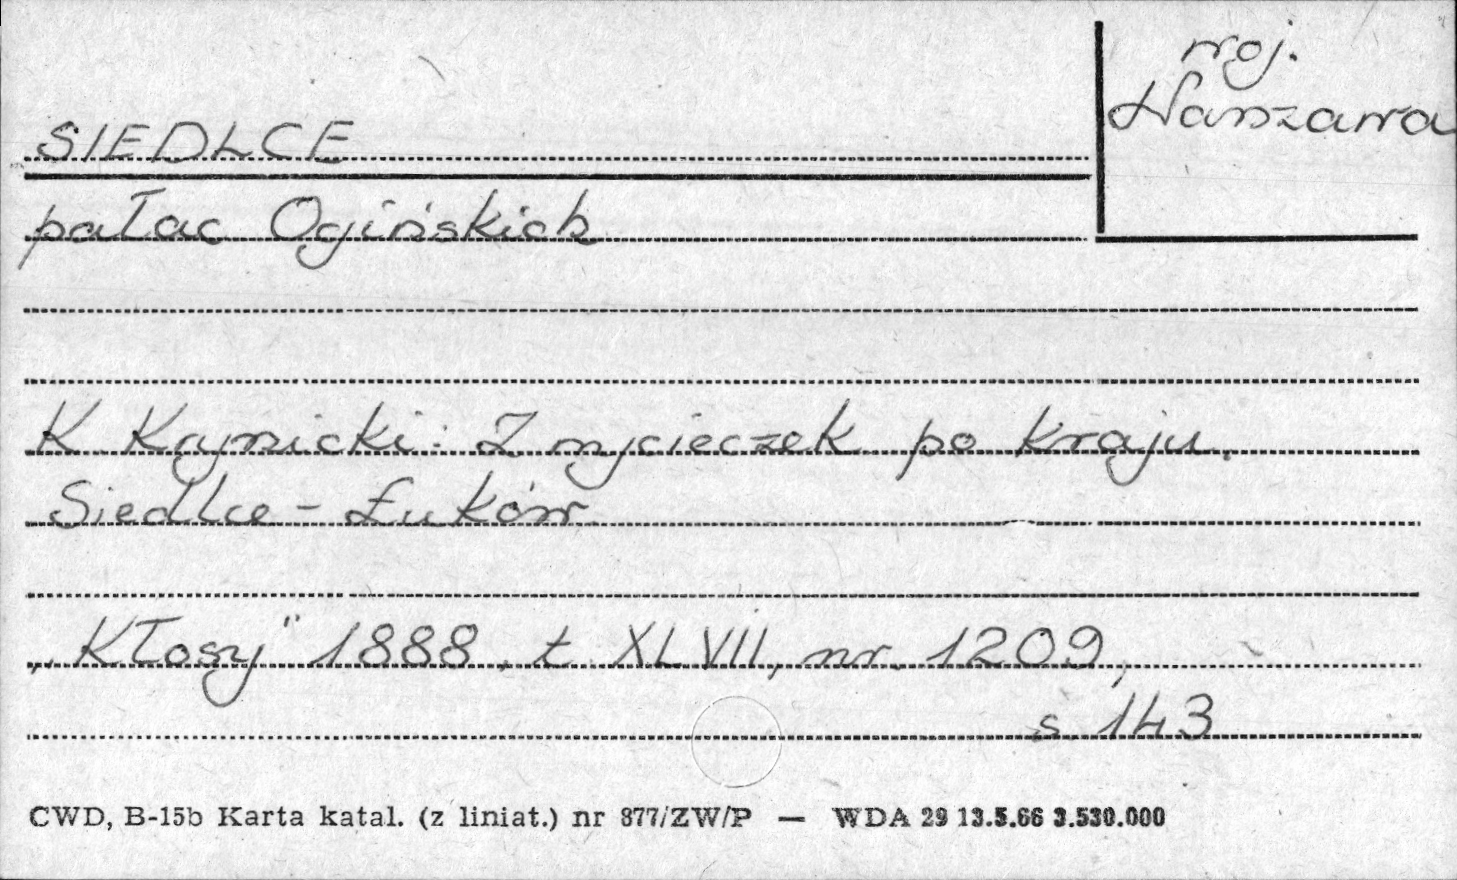 woj.
Warszawa
SIEDLCE
pałac Ogińskich
K. Krynicki: Z wycieczek po kraju.
Siedlce - Łuków
"Kłosy" 1888, t. XLVII, nr. 1209,
s. 143
CWD, B-15b Karta katal. (z liniat.) nr 877/ZW/P — WDA 29 13.5.66 3.530.000